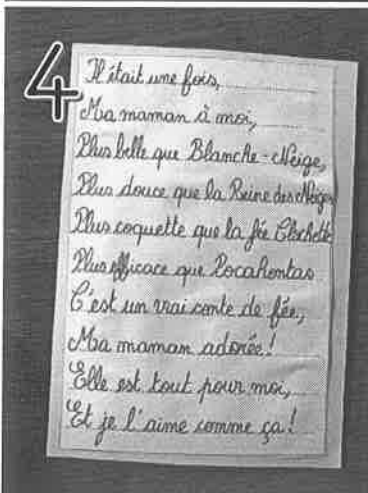 4
Il était une fois,
Ma maman à moi,
Plus belle que Blanche-Neige,
Plus douce que la Reine des Neiges
Plus coquette que la fée Clochette
Plus efficace que Pocahontas
C'est un vrai conte de fée,
Ma maman adorée !
Elle est tout pour moi,
Et je l'aime comme ça !